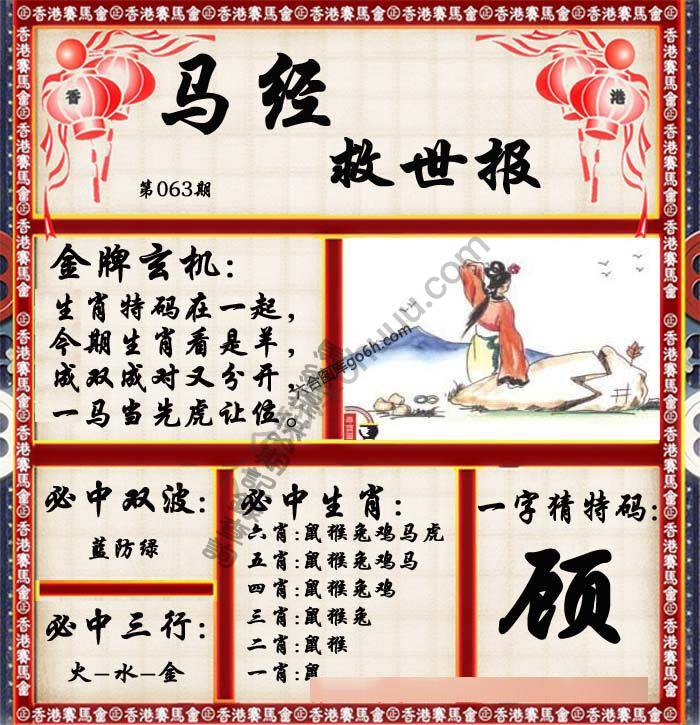 香港賽馬會
香 港
马经
救世报
第063期
金牌玄机:
生肖特码在一起,
今期生肖看是羊,
成双成对又分开,
一马当先虎让位。
六合图库go6h.com
必中双波:
藍防绿
必中三行:
火-水-金
必中生肖:
六肖:鼠猴兔鸡马虎
五肖:鼠猴兔鸡马
四肖:鼠猴兔鸡
三肖:鼠猴兔
二肖:鼠猴
一肖:鼠
一字猜特码:
顾